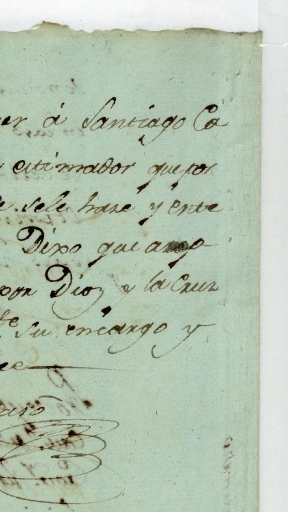 er á Santiago Ca
estimador que por
se le hase y ente
Dixo que acep
por Dios y la Cruz
su encargo y